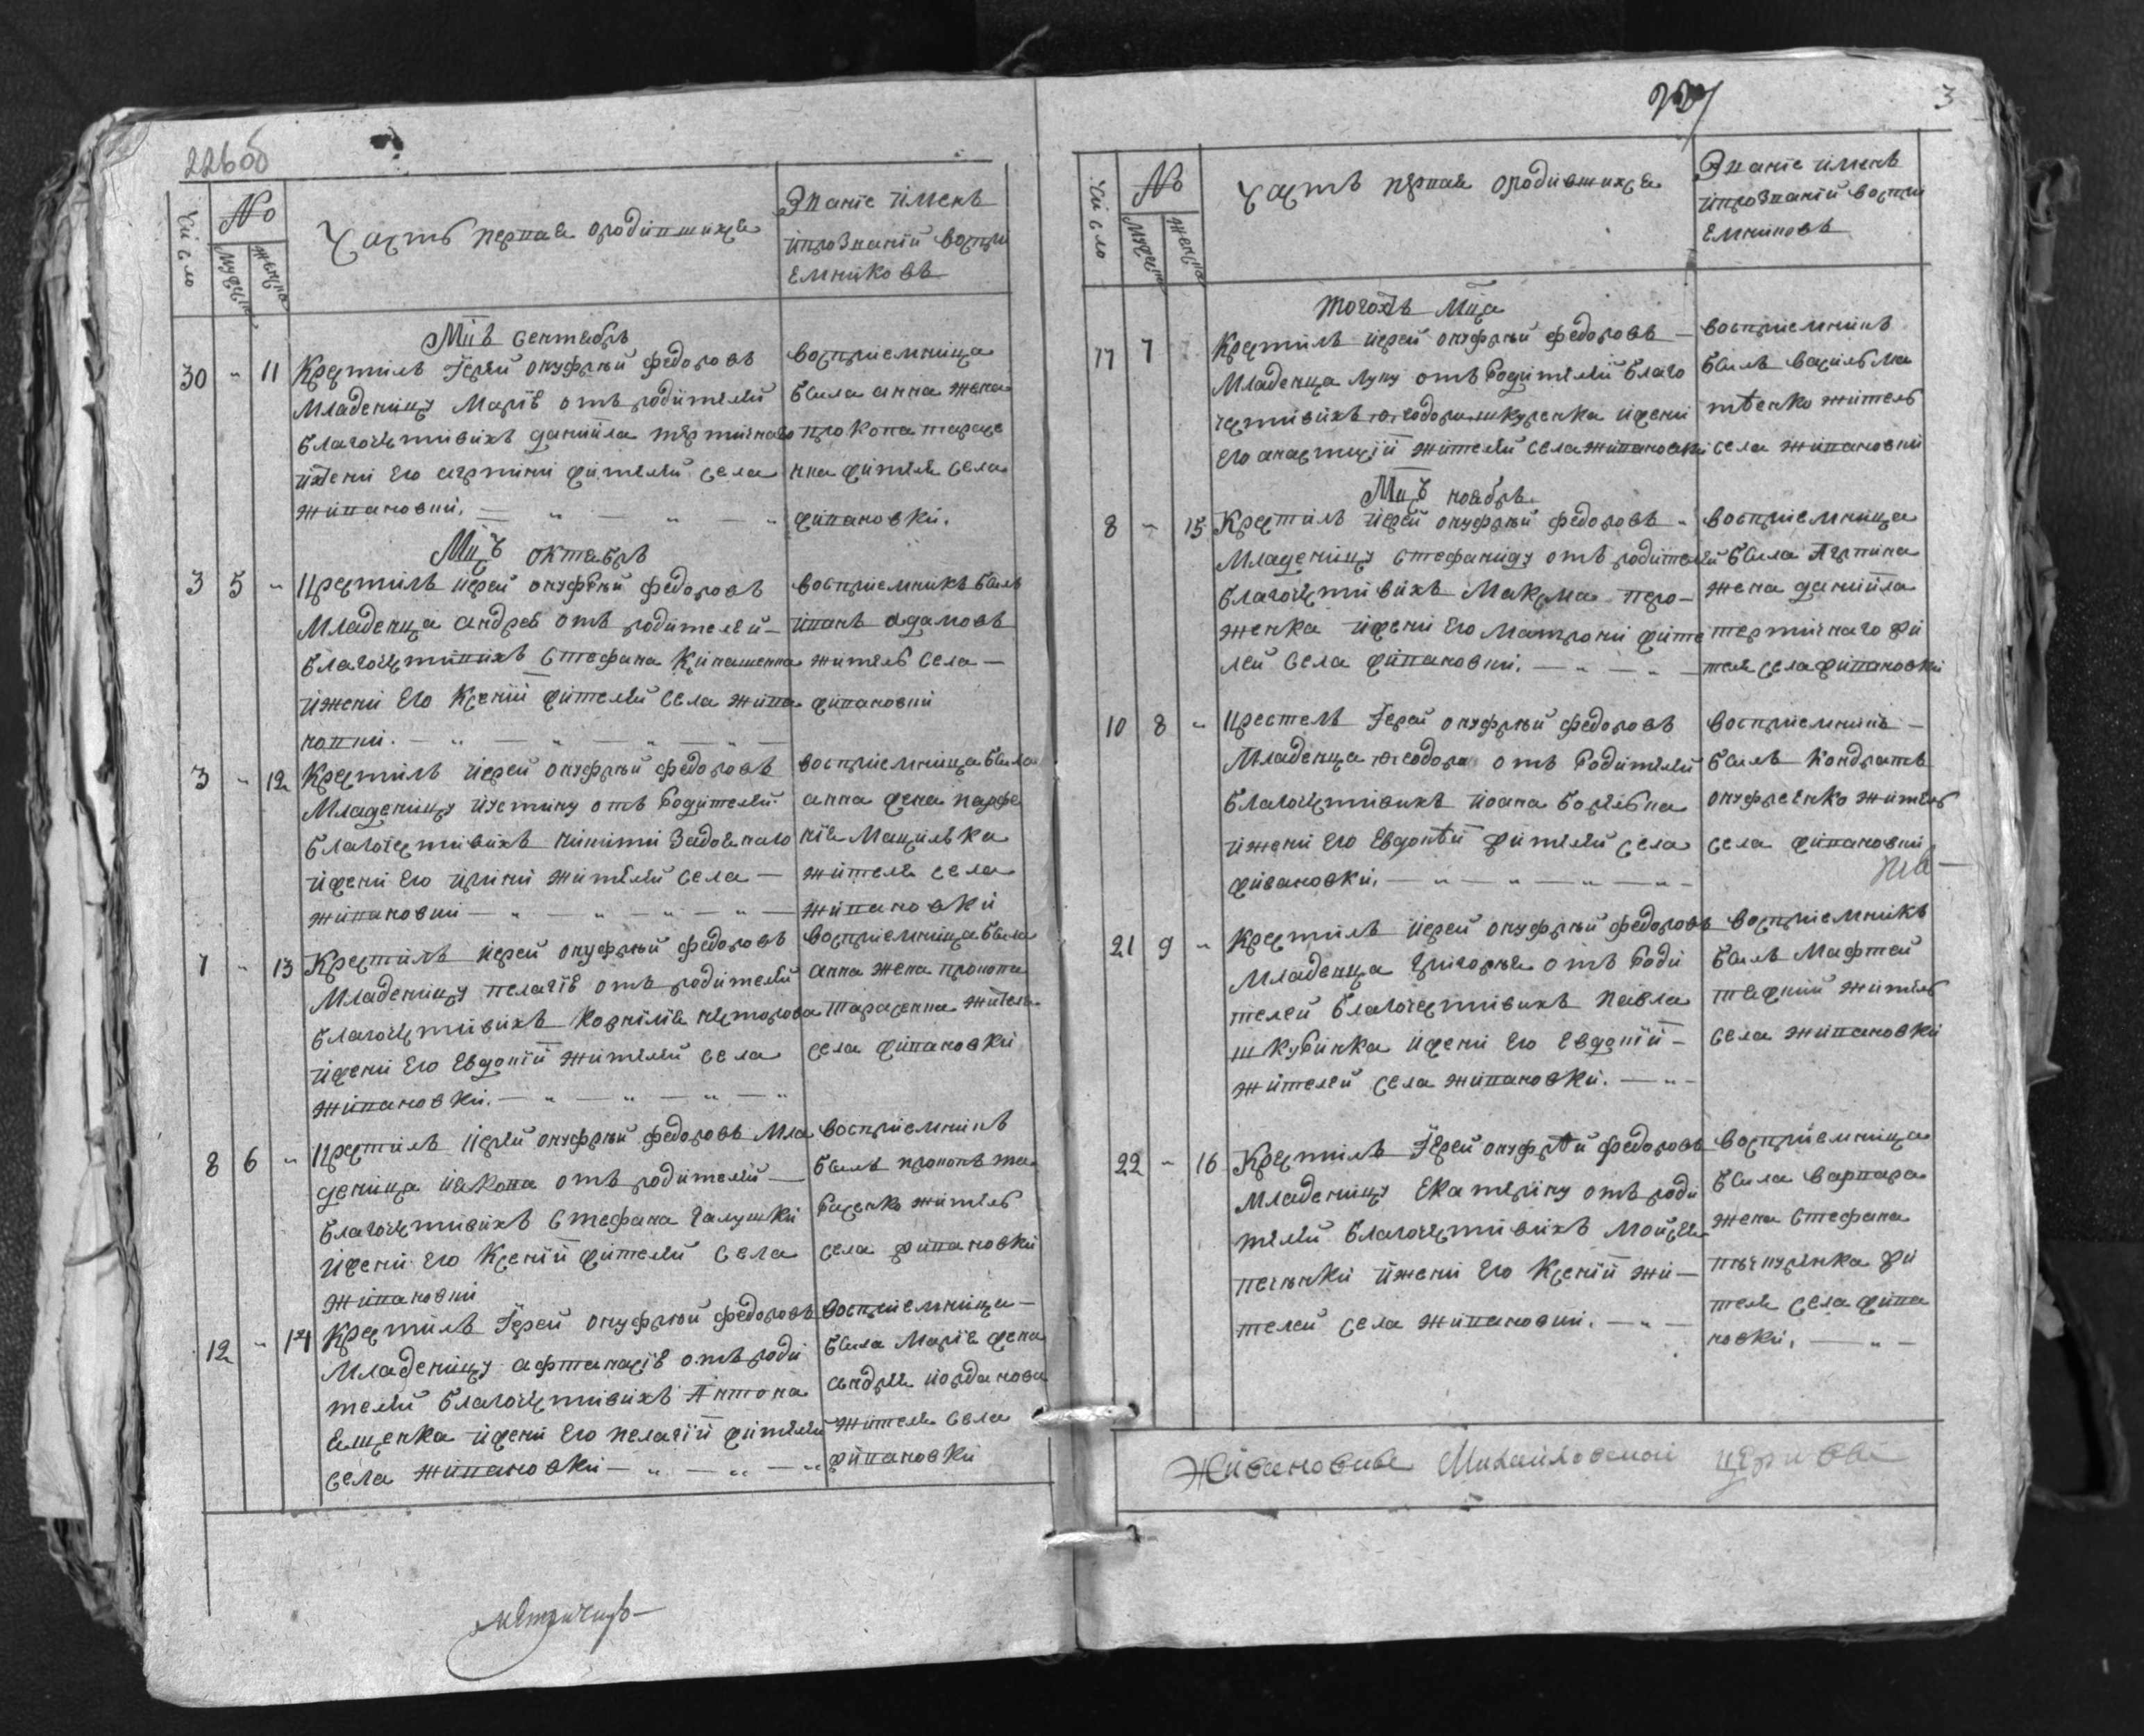 226об
Число
№
мужеска
женска
Часть первая ородившихся
Званіе именъ
ипрозваній воспри
емниковъ
Мцъ сентябрь
30 " 11 Крестилъ Іерей онуфрый федоровъ
младеницу Марію отъ родителей
благочестивихъ даніила
ижени его агрипини жителей села
живановки.
восприемница
была анна жена
прокопа тараще
нка жителя села
живановки.
Мцъ октябрь
3 5 " Крестилъ иерей онуфрый федоровъ
младенца андрея отъ родителей
благочестивихъ Стефана
ижени его Ксеніи жителей села жива
новки.
восприемникъ былъ
иванъ адамовъ
житель села
живановки
3 " 12 Крестилъ иерей онуфрый федоровъ
младеницу иустину отъ родителей
благочестивихъ никити
ижени его ирини жителей села
живановки
восприемница была
анна жена парфе
нія
жителя села
живановки
7 " 13 Крестилъ иерей онуфрый федоровъ
младеницу пелагію отъ родителей
благочестивихъ Корнилія
ижени его Евдокіи жителей села
живановки.
восприемница была
анна жена прокопа
таращенка жителя
села живановки
8 6 " Крестилъ иерей онуфрый федоровъ мла
деница иакова отъ родителей
благочестивихъ Стефана галушки
ижени его Ксеніи жителей села
живановки
восприемникъ
былъ прокопъ
житель
села живановки
12 " 14 Крестилъ Іерей онуфрый федоровъ
младеницу отъ роди
телей благочестивихъ Антона
ижени его пелагіи жителей
села живановки
восприемница
была Марія жена
андрея иорданова
жителя села
живановки
227
3
Число
№
мужеска
женска
Часть первая ородившихся
Званіе именъ
ипрозваній воспри
емниковъ
тогожъ Мца
17 7 Крестилъ иерей онуфрый федоровъ
младенца луку отъ родителей благо
честивихъ ижени
его анастасіи жителей села живановки
восприемникъ
былъ василь ма
тѣенко житель
села живановки
Мцъ ноябрь
8 " 15 Крестилъ иерей онуфрый федоровъ
младеницу стефаниду отъ родителей
благочестивихъ
ижени его Матрони жите
лей села живановки.
восприемница
была Агрпина
жена даніила
жи
теля села живановки
10 8 " Крестилъ Іерей онуфрый федоровъ
младенца феодора отъ родителей
благочестивихъ иоана
ижени его Евдокіи жителей села
живановки.
восприемникъ
былъ Кондратъ
онуфреенко житель
села живановки
21 9 " Крестилъ иерей онуфрый федоровъ
младенца григорыя отъ роди
телей благочестивихъ павла
ижени его Евдокіи
жителей села живановки.
восприемникъ
былъ Мафтей
житель
села живановки
22 " 16 Крестилъ Іерей онуфрѣй федоровъ
младеницу Екатерину отъ роди
телей благочестивихъ Мойсея
ижени его Ксеніи жи
телей села живановки.
восприемница
была варвара
жена стефана
жи
теля села жива
новки.
Живановские Михайловской церкови